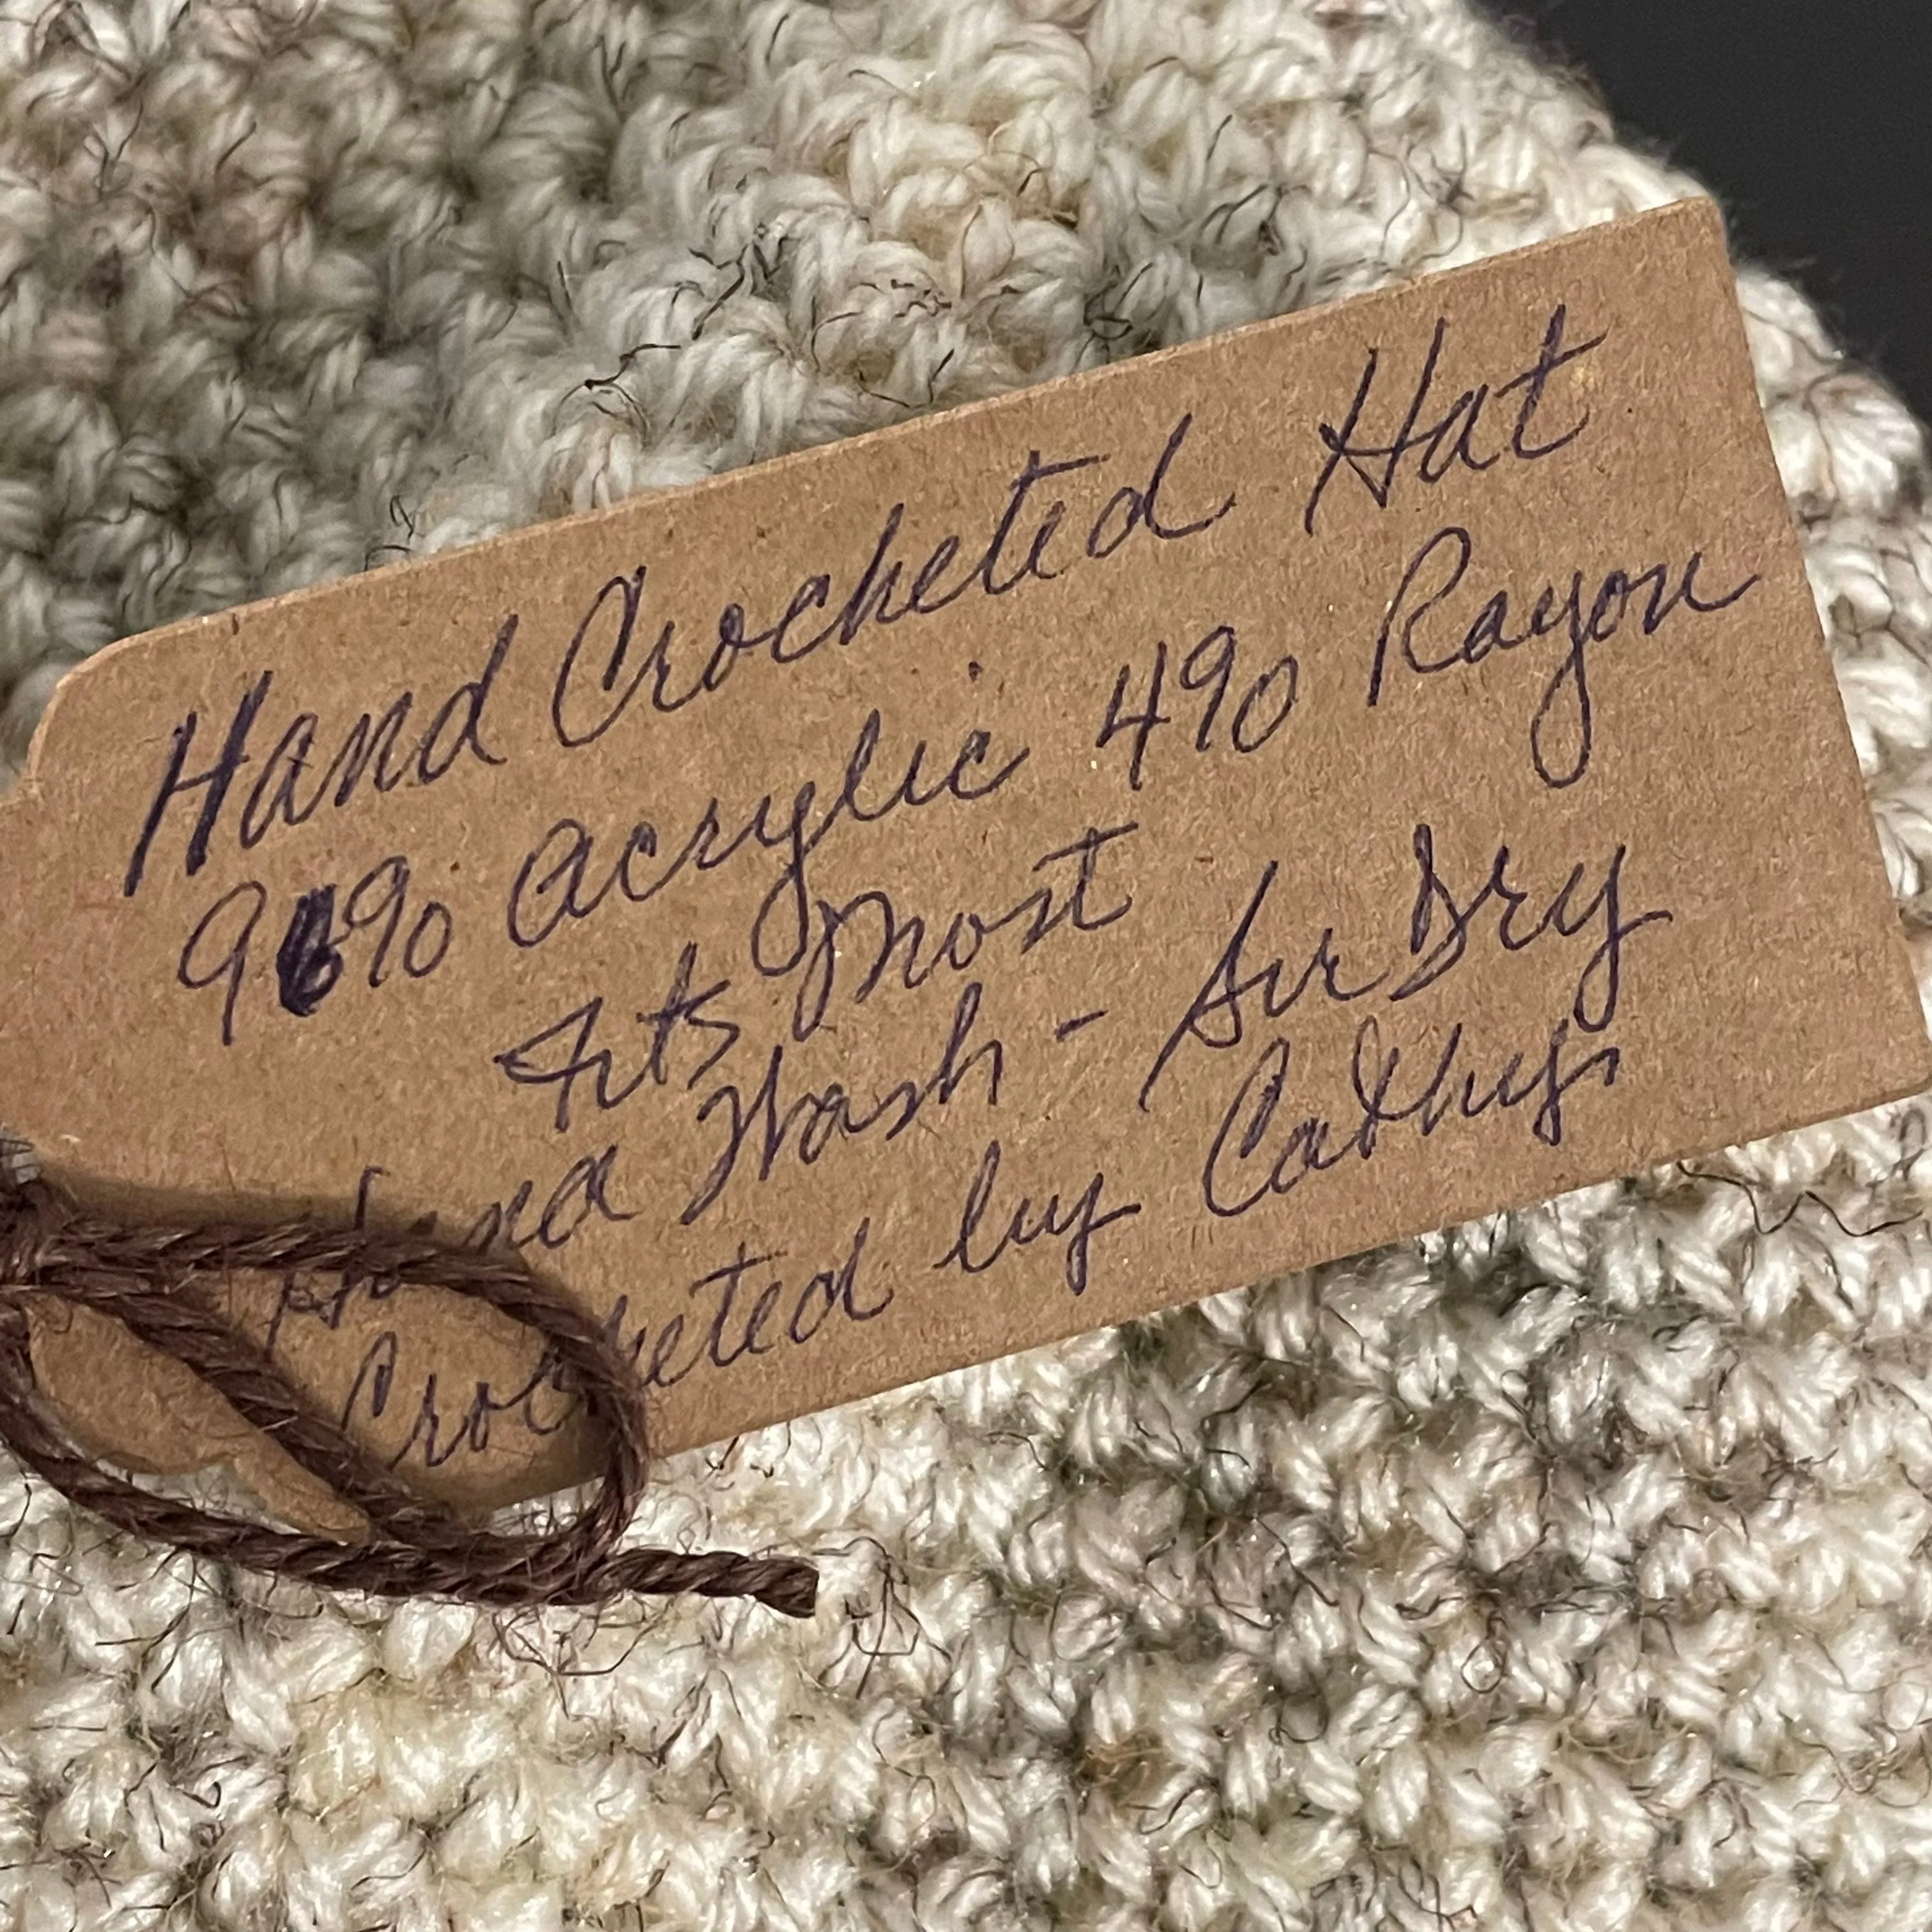 Hand Crocheted Hat
96% acrylic 4% Rayon
Fits Most
Hand Wash - Air Dry
Crocheted by Cathy